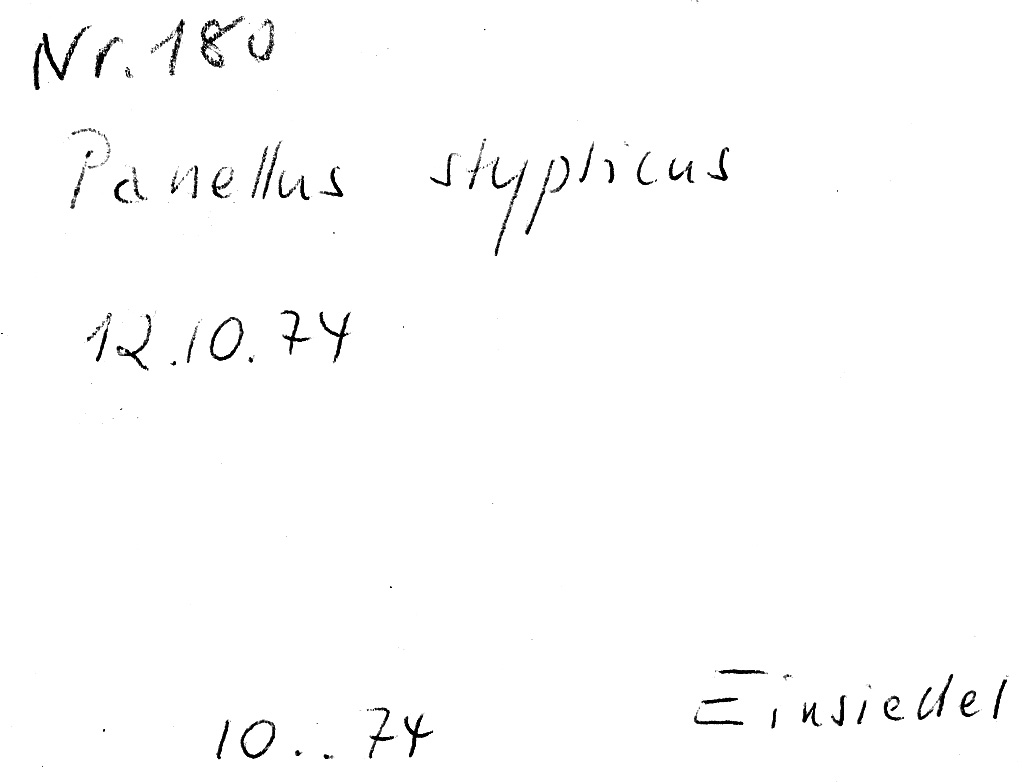 Nr. 180
Panellus stypticus
12.10.74
10... 74 Einsiedel